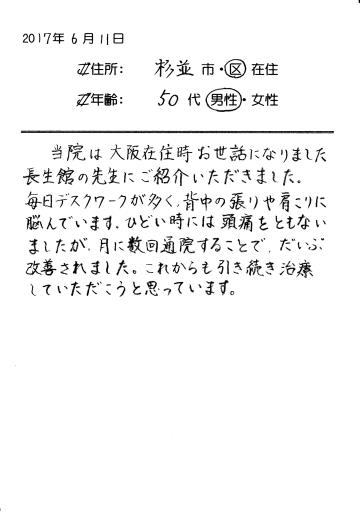 2017年 6月 11日
住所: 杉並 市・区 在住
年齢: 50 代 男性・女性
当院は大阪在住時お世話になりました
長生館の先生にご紹介いただきました。
毎日デスクワークが多く、背中の張りや肩こりに
悩んでいます。ひどい時には頭痛をともない
ましたが、月に数回通院することで、だいぶ
改善されました。これからも引き続き治療
していただこうと思っています。